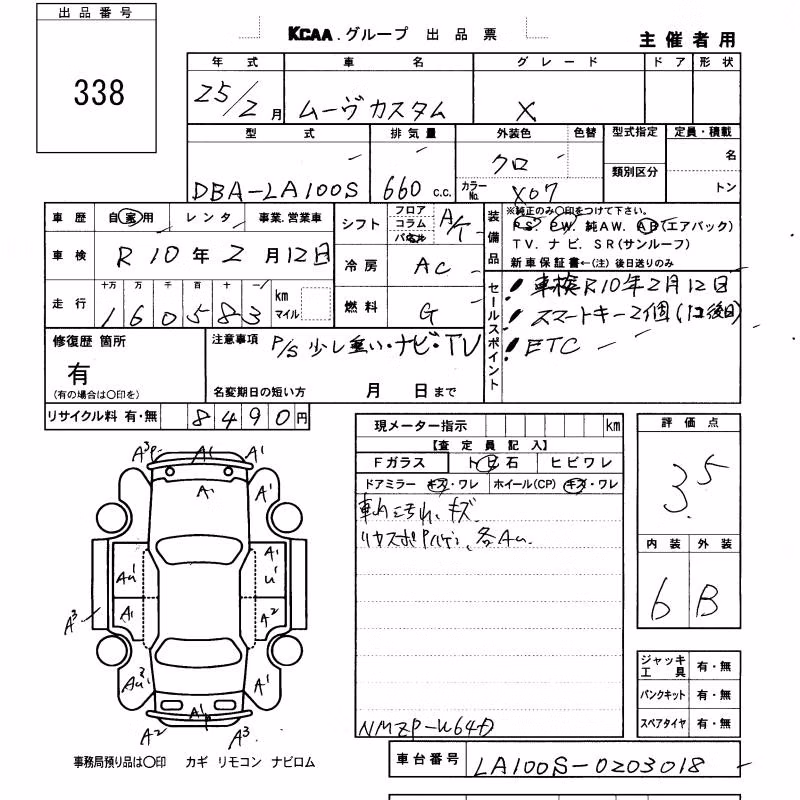 出品番号
338
KCAA.グループ 出品票
主催者用
年式 車名 グレード ドア 形状
25/2月 ムーヴカスタム X
型式 排気量 外装色 色替 型式指定 定員・積載
DBA-LA100S 660 c.c. クロ 名
カラーNo. X07 類別区分 トン
車歴 自家用 レンタ 事業.営業車
シフト フロア コラム A/T
車検 R10年2月12日
冷房 AC
走行 十万 万 千 百 十 一
160583 km マイル
燃料 G
装備品 ※純正のみ○印をつけて下さい。
PS. PW. 純AW. AB(エアバック)
TV. ナビ. SR(サンルーフ)
新車保証書←(注)後日送りのみ
セールスポイント
! 車検R10年2月12日
! スマートキー2個(1コ後日)
! ETC
修復歴 箇所
有
(有の場合は○印を)
注意事項 P/S少し重い・ナビ・TV
名変期日の短い方 月 日まで
リサイクル料 有・無 8490円
現メーター指示 km
【査定員記入】
Fガラス トビ石 ヒビワレ
ドアミラー キズ・ワレ ホイール(CP) キズ・ワレ
キズ
各Au.
NMZP-W64D
評価点
3.5
内装 外装
6 B
ジャッキ工具 有・無
パンクキット 有・無
スペアタイヤ 有・無
A3 A1 A1
A1
A1 A1
Au1 A1 U1
A3 A1 A2
Au2 A1
A2 A3
事務局預り品は○印 カギ リモコン ナビロム
車台番号 LA100S-0203018